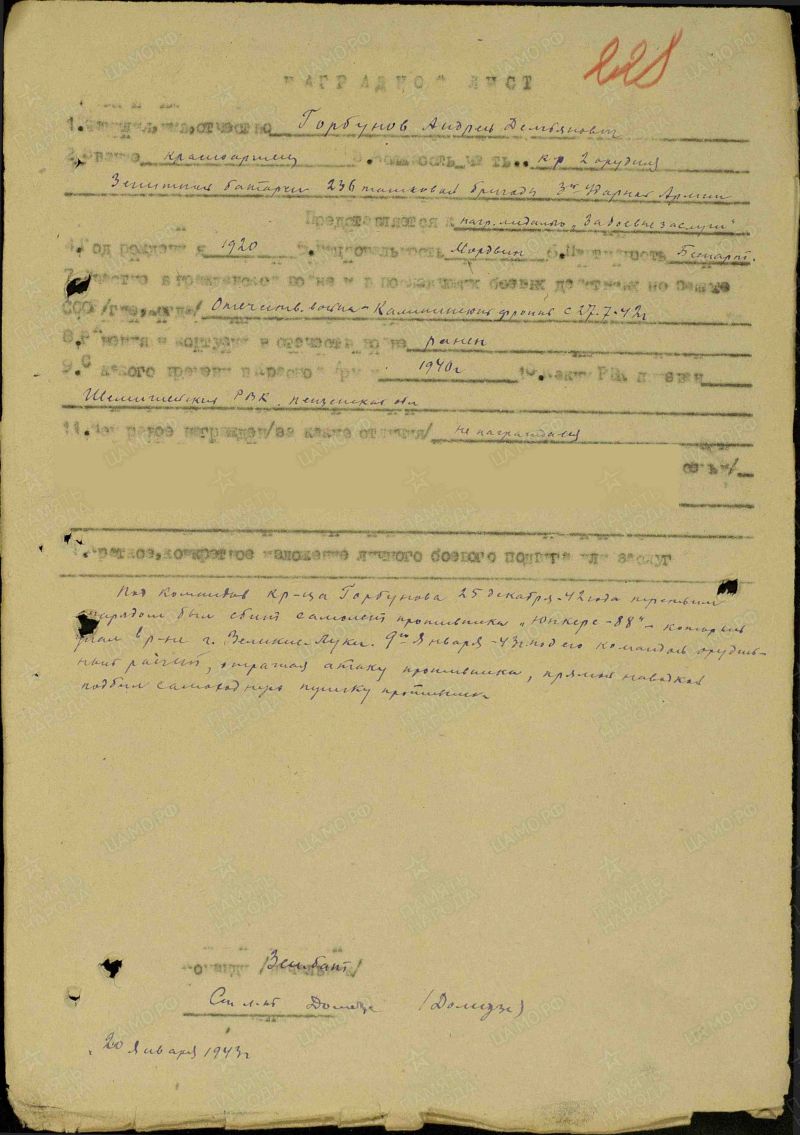 228
НАГРАДНОЙ ЛИСТ
1. Фамилия, имя, отчество Горбунов Андрей Демьянович
2. Звание красноармеец 3. Должность, часть.. к-р 2 орудия
Зенитная батарея 236 танковая бригада 3й Ударной Армии
Представляется к нагр. медалью „За боевые заслуги"
4. Год рождения 1920 5. Национальность Мордвин 6. Партийность Беспарт.
7. Участие в гражданской войне и в последующих боевых действиях по защите
СССР /где, когда/ Отечеств. война - Калининский фронт с 27.7.42г
8. ранения и контузии в отечеств войне ранен
9. С какого времени в Красной Армии 1940г 10. Каким РВК призван
РВК. Пензенская обл
11. Чем ранее награжден/за какие отличия/ не награждался
Краткое, конкретное изложение личного боевого подвига или заслуг
Под командов кр-ца Горбунова 25 декабря-42 года первым
снарядом был сбит самолет противника „Юнкерс-88"- который
упал в р-не г. Великие-Луки. 9го Января-43г под его командов орудий-
ный расчет, отражая атаку противника, прямой наводкой
подбил самоходную пушку противника
Командир Зен. бат
Ст. л-нт (Домидзе)
20 Января 1943г
ПАМЯТЬ НАРОДА
ЦАМО.РФ